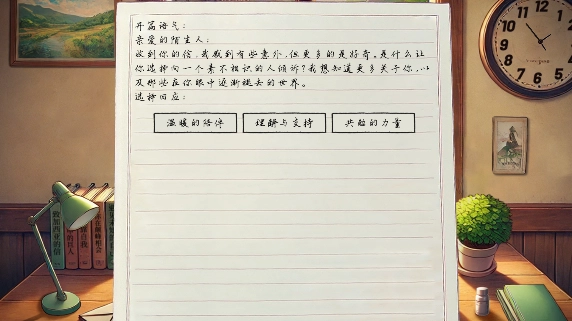 开篇语气：
亲爱的陌生人：
收到你的信，我感到有些意外，但更多的是好奇。是什么让
你选择向一个素不相识的人倾诉？我想知道更多关于你，以
及那些在你眼中逐渐褪去的世界。
选择回应：
温暖的陪伴
理解与支持
共鸣的力量